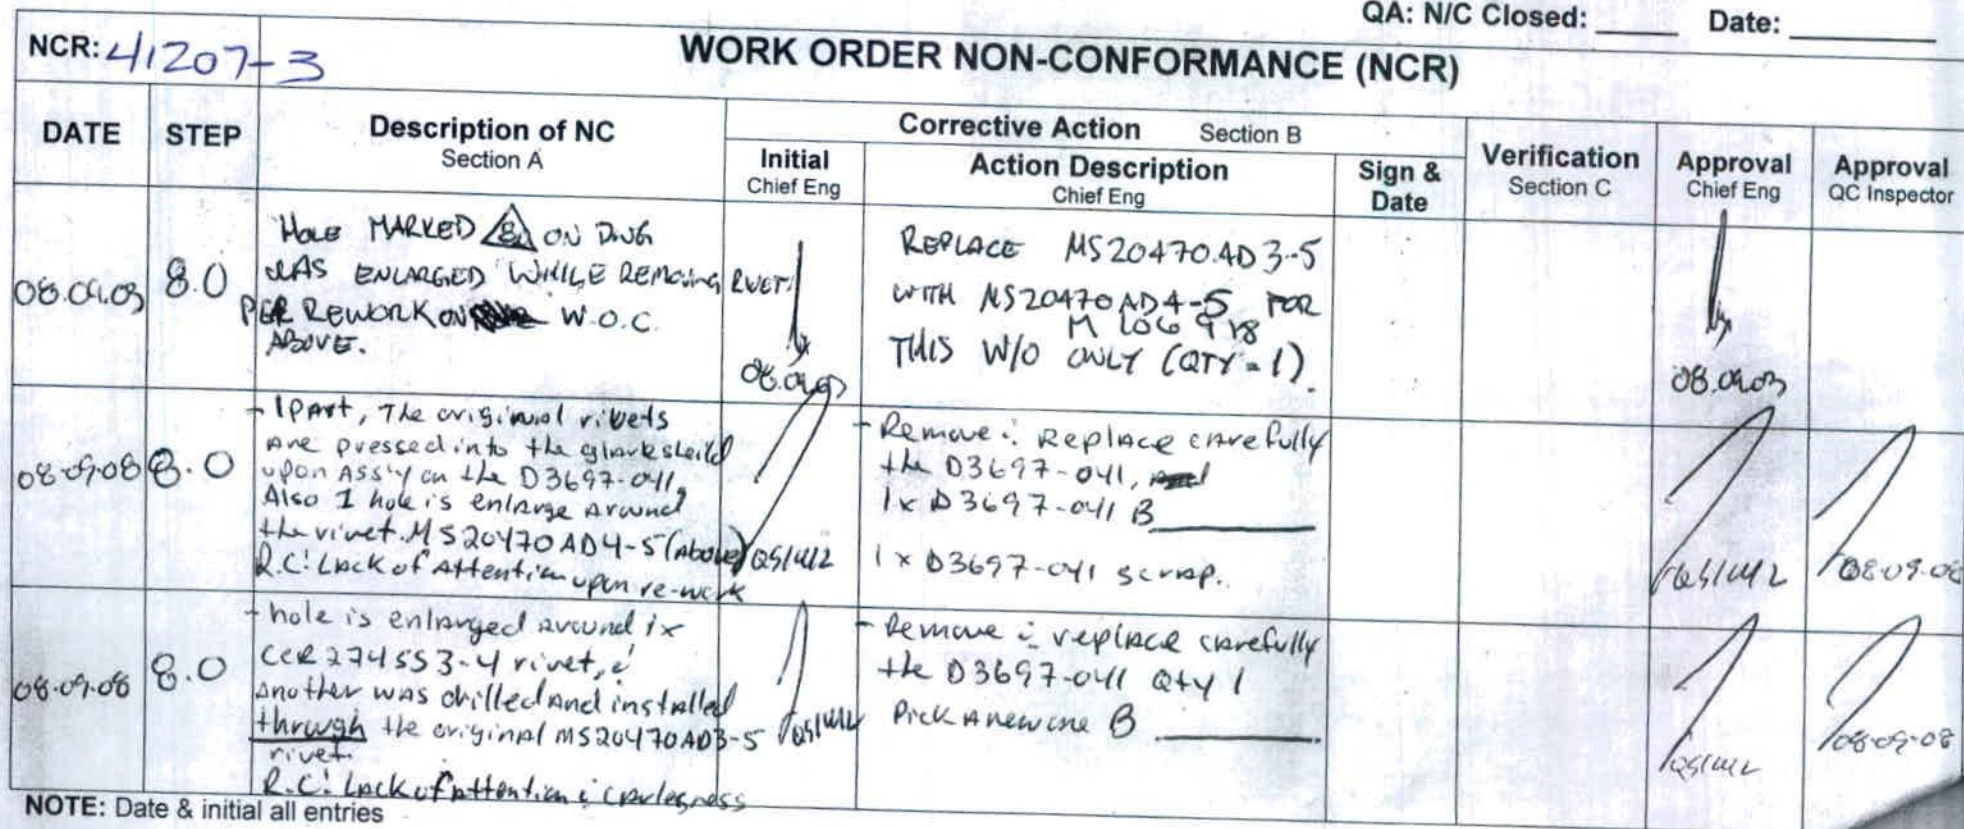 QA: N/C Closed: ______ Date: ______
NCR: 41207-3
WORK ORDER NON-CONFORMANCE (NCR)
DATE
STEP
Description of NC
Section A
Corrective Action Section B
Initial
Chief Eng
Action Description
Chief Eng
Sign &
Date
Verification
Section C
Approval
Chief Eng
Approval
QC Inspector
08.09.03
8.0
HOLE MARKED 8 ON DWG
WAS ENLARGED WHILE REMOVING RIVET
PER REWORK ON W.O.C.
ABOVE.
08.09.03
REPLACE MS20470AD3-5
WITH MS20470AD4-5 FOR
THIS W/O ONLY (QTY = 1).
08.09.03
08-09-08
8.0
- 1 part, The original rivets
are pressed into the glaresheild
upon ASS'Y on the D3697-041,
Also 1 hole is enlarge around
the rivet MS20470AD4-5 (Above)
R.C: Lack of Attention upon re-work
- Remove & Replace carefully
the D3697-041,
1x D3697-041 B______
1 x D3697-041 scrap.
08-09-08
08-09-08
8.0
- hole is enlarged around 1x
CCR274SS3-4 rivet, &
another was drilled and installed
through the original MS20470AD3-5
rivet.
R.C: Lack of attention & carlegness
- Remove & replace carefully
the D3697-041 Qty 1
Pick a new one B ______
08-09-08
NOTE: Date & initial all entries